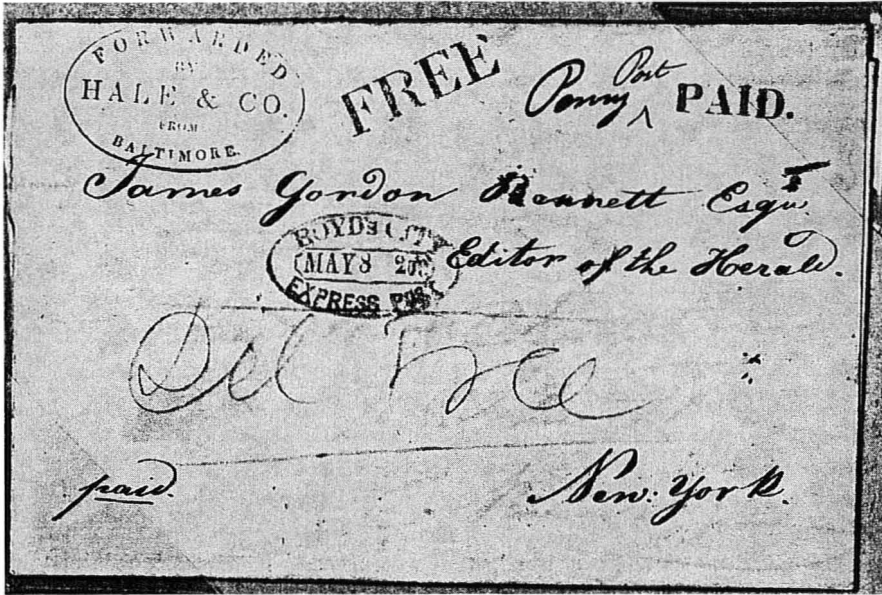 FORWARDED
BY
HALE & CO.
FROM
BALTIMORE.
FREE
Penny Post PAID.
James Gordon Bennett Esqr.
BOYD'S CITY
MAY 8
EXPRESS POST
Editor of the Herald.
Del Free
paid.
New York.